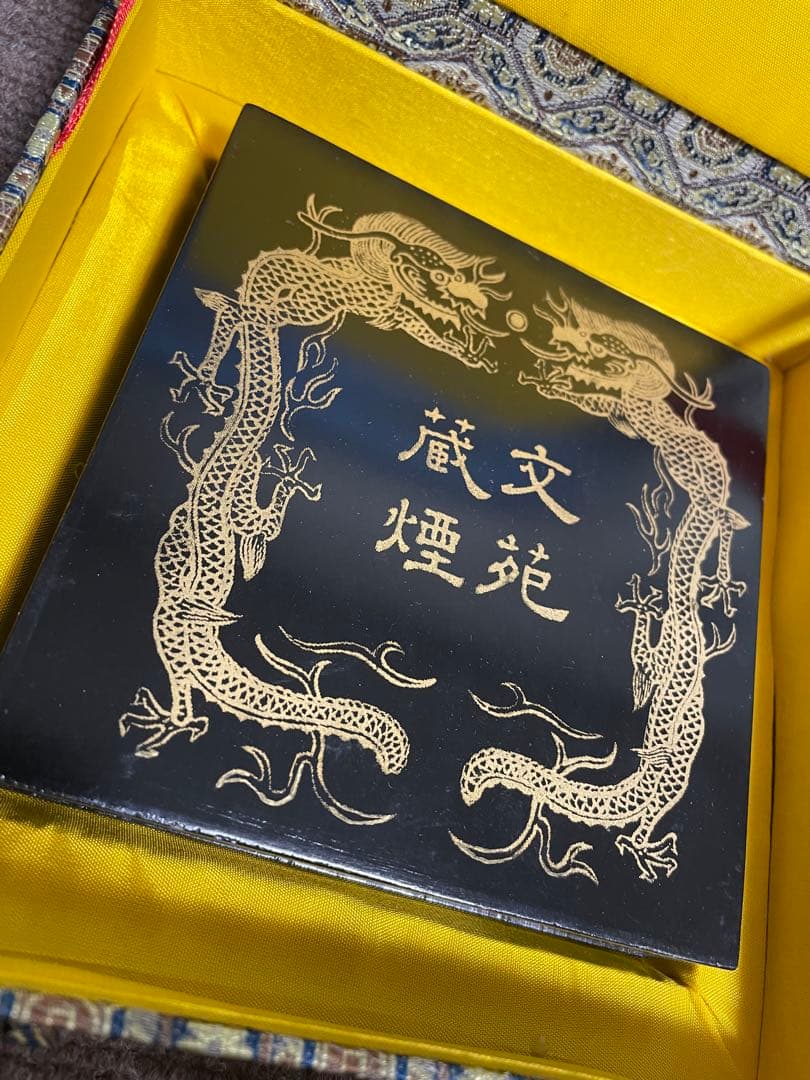 文苑
蔵煙